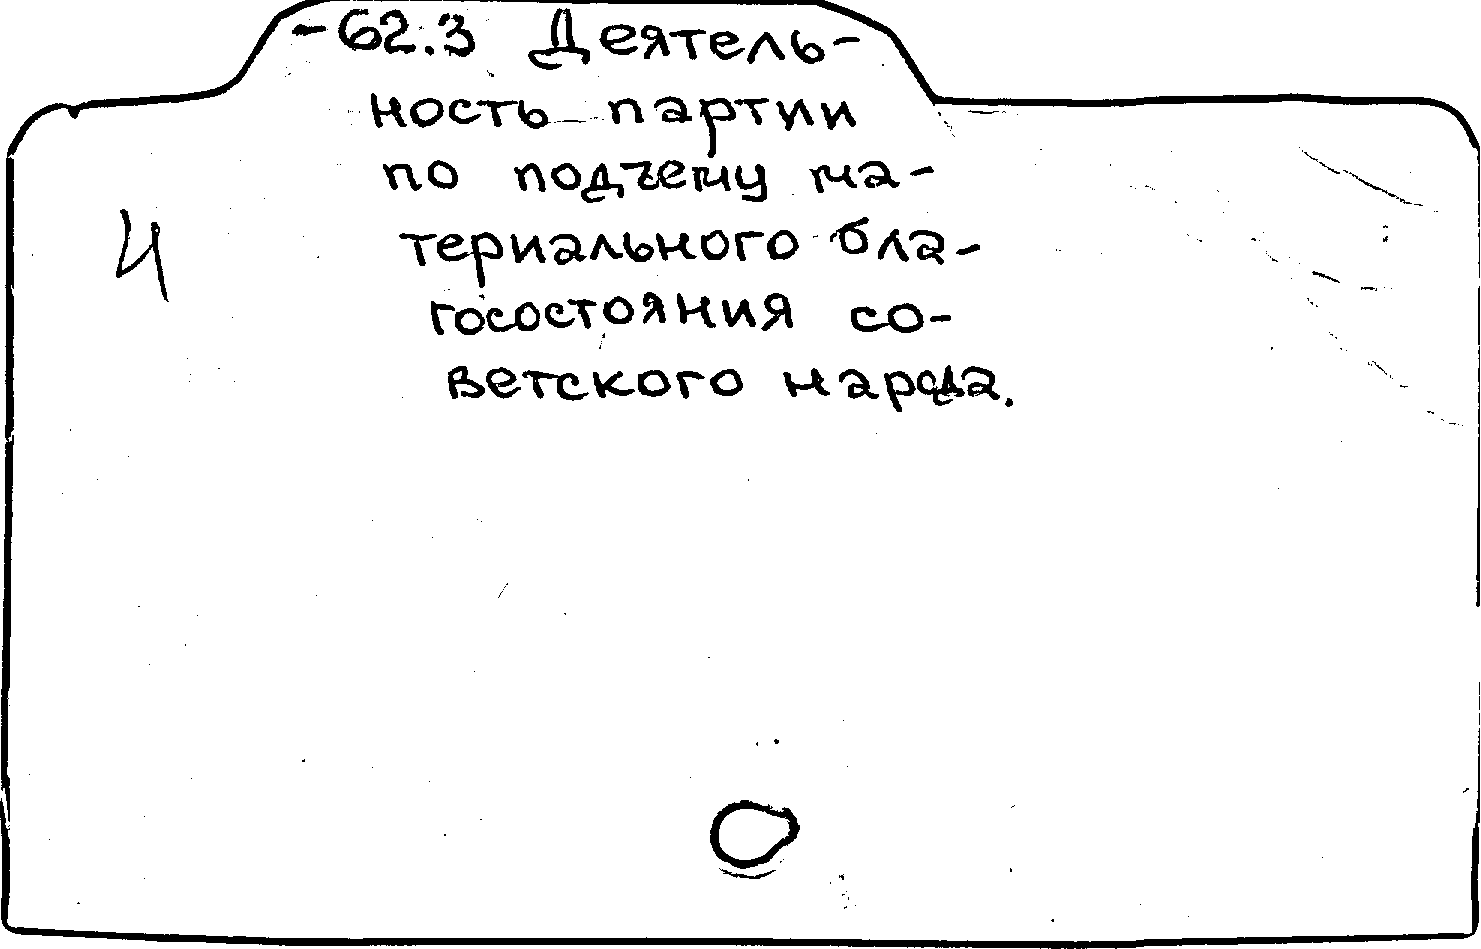 -62.3 Деятель-
ность партии
по подъему ма-
териального бла-
госостояния со-
ветского народа.
4